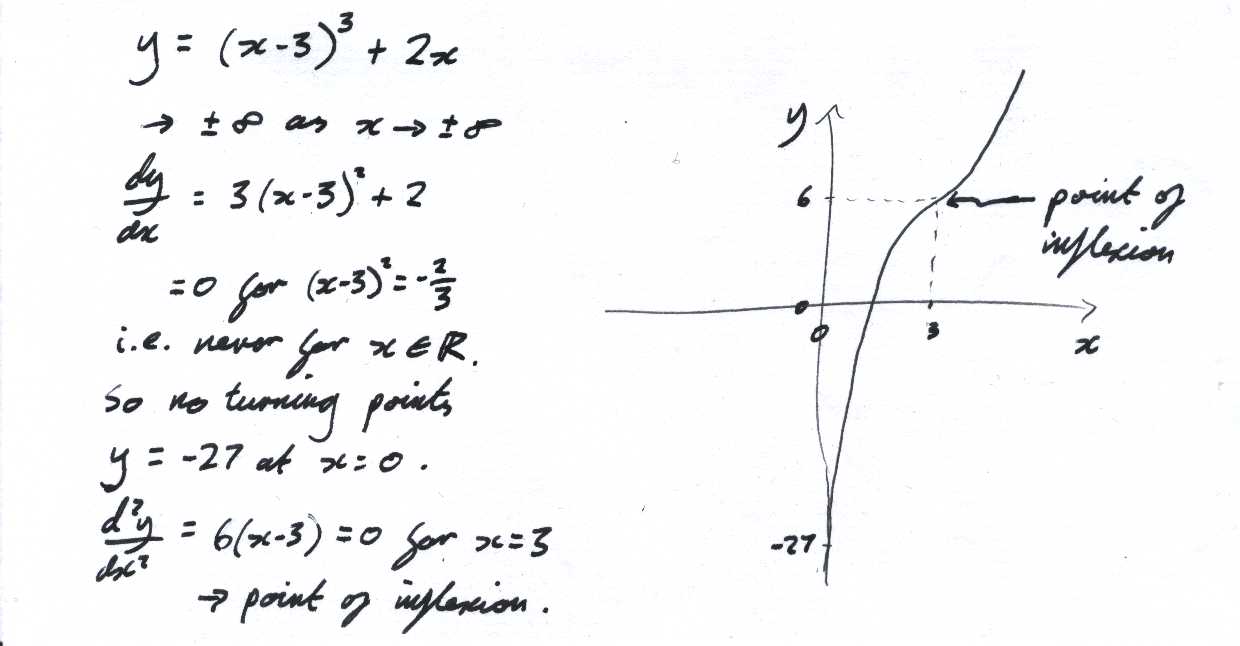 y = (x-3)³ + 2x
→ ±∞ as x → ±∞
dy/dx = 3(x-3)² + 2
= 0 for (x-3)² = -2/3
i.e. never for x ∈ ℝ.
So no turning points
y = -27 at x = 0.
d²y/dx² = 6(x-3) = 0 for x = 3
→ point of inflexion.
y
6
point of
inflexion
0
0
3
x
-27